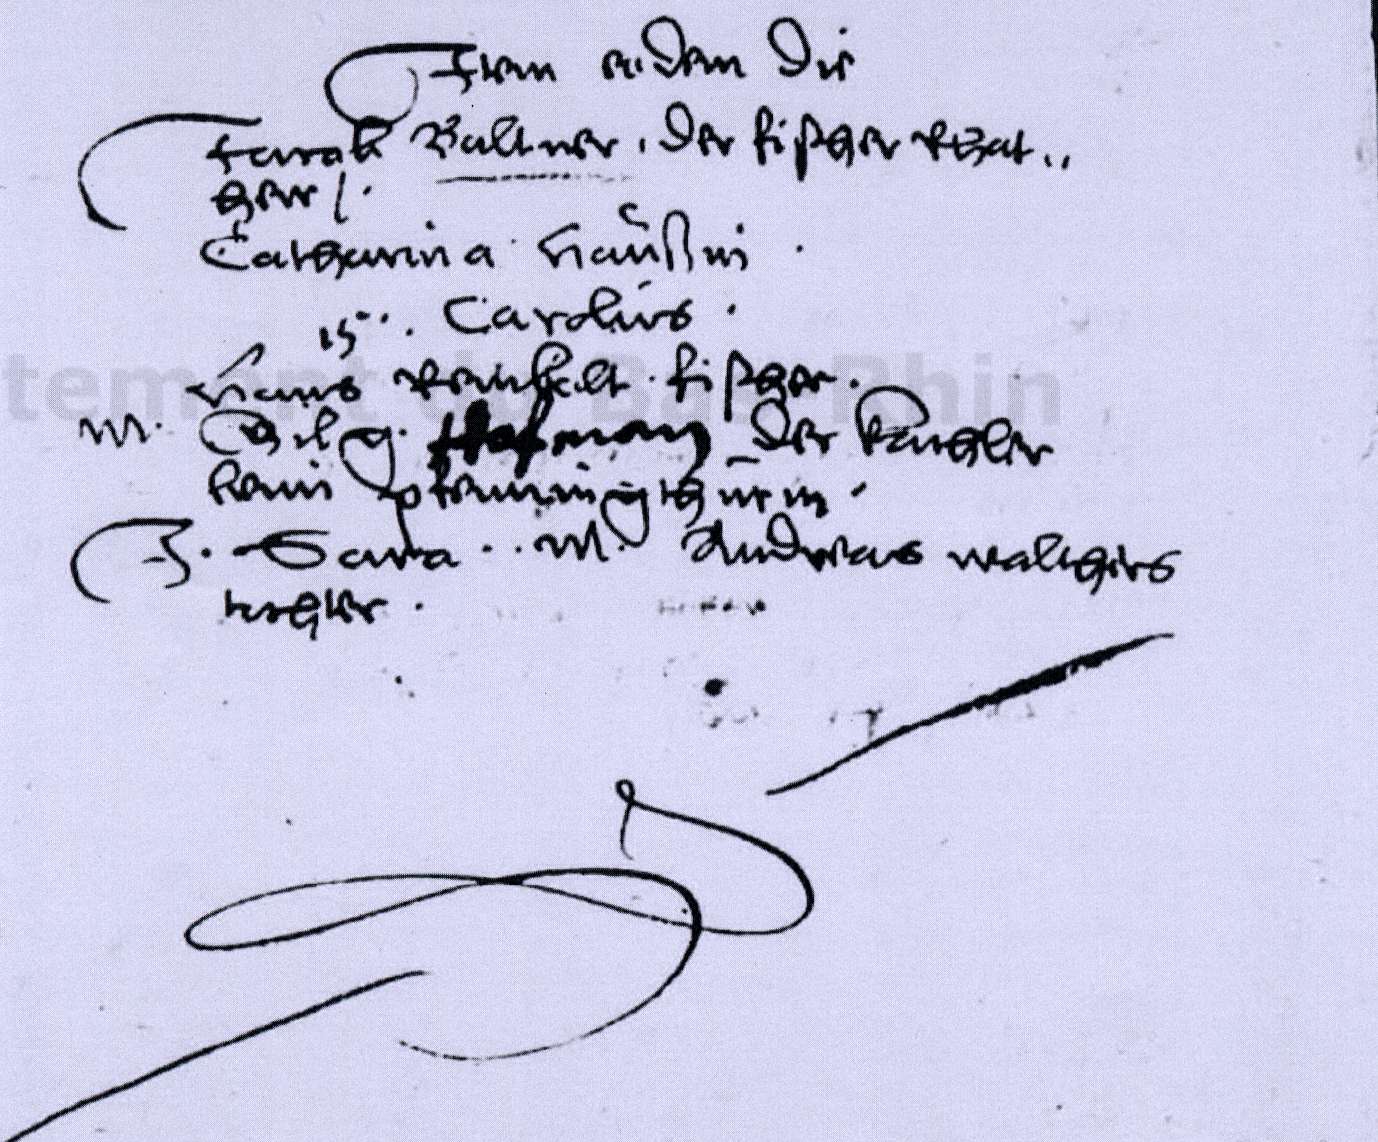 eodem die
Jacob Baltner, der fischer Rhat..
herr /.
Catharina Haüßin.
15... Carolus.
Hans Reinhalt fischer.
M. Gilg Hofman der kantzler
kein pfenningthürm.
3. Sara.. M. Andreas waltheirs
tochter.
tement du Bas-Rhin